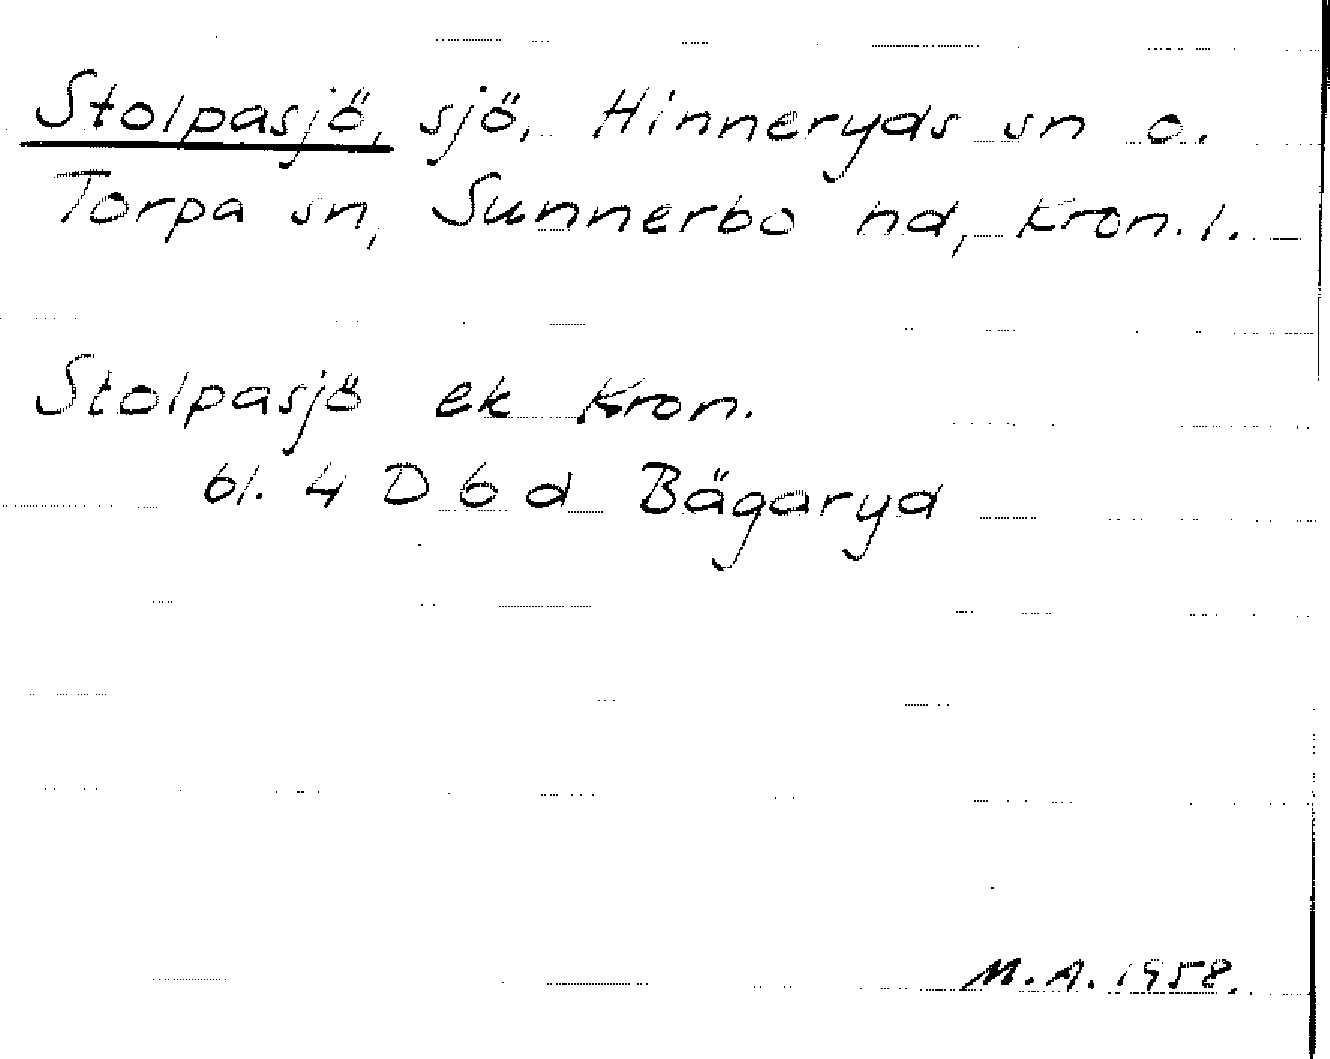 Stolpasjö, sjö, Hinneryds sn o.
Torpa sn, Sunnerbo hd, Kron. l.
Stolpasjö ek Kron.
bl. 4 D 6 d Bägaryd
M.A. 1958.